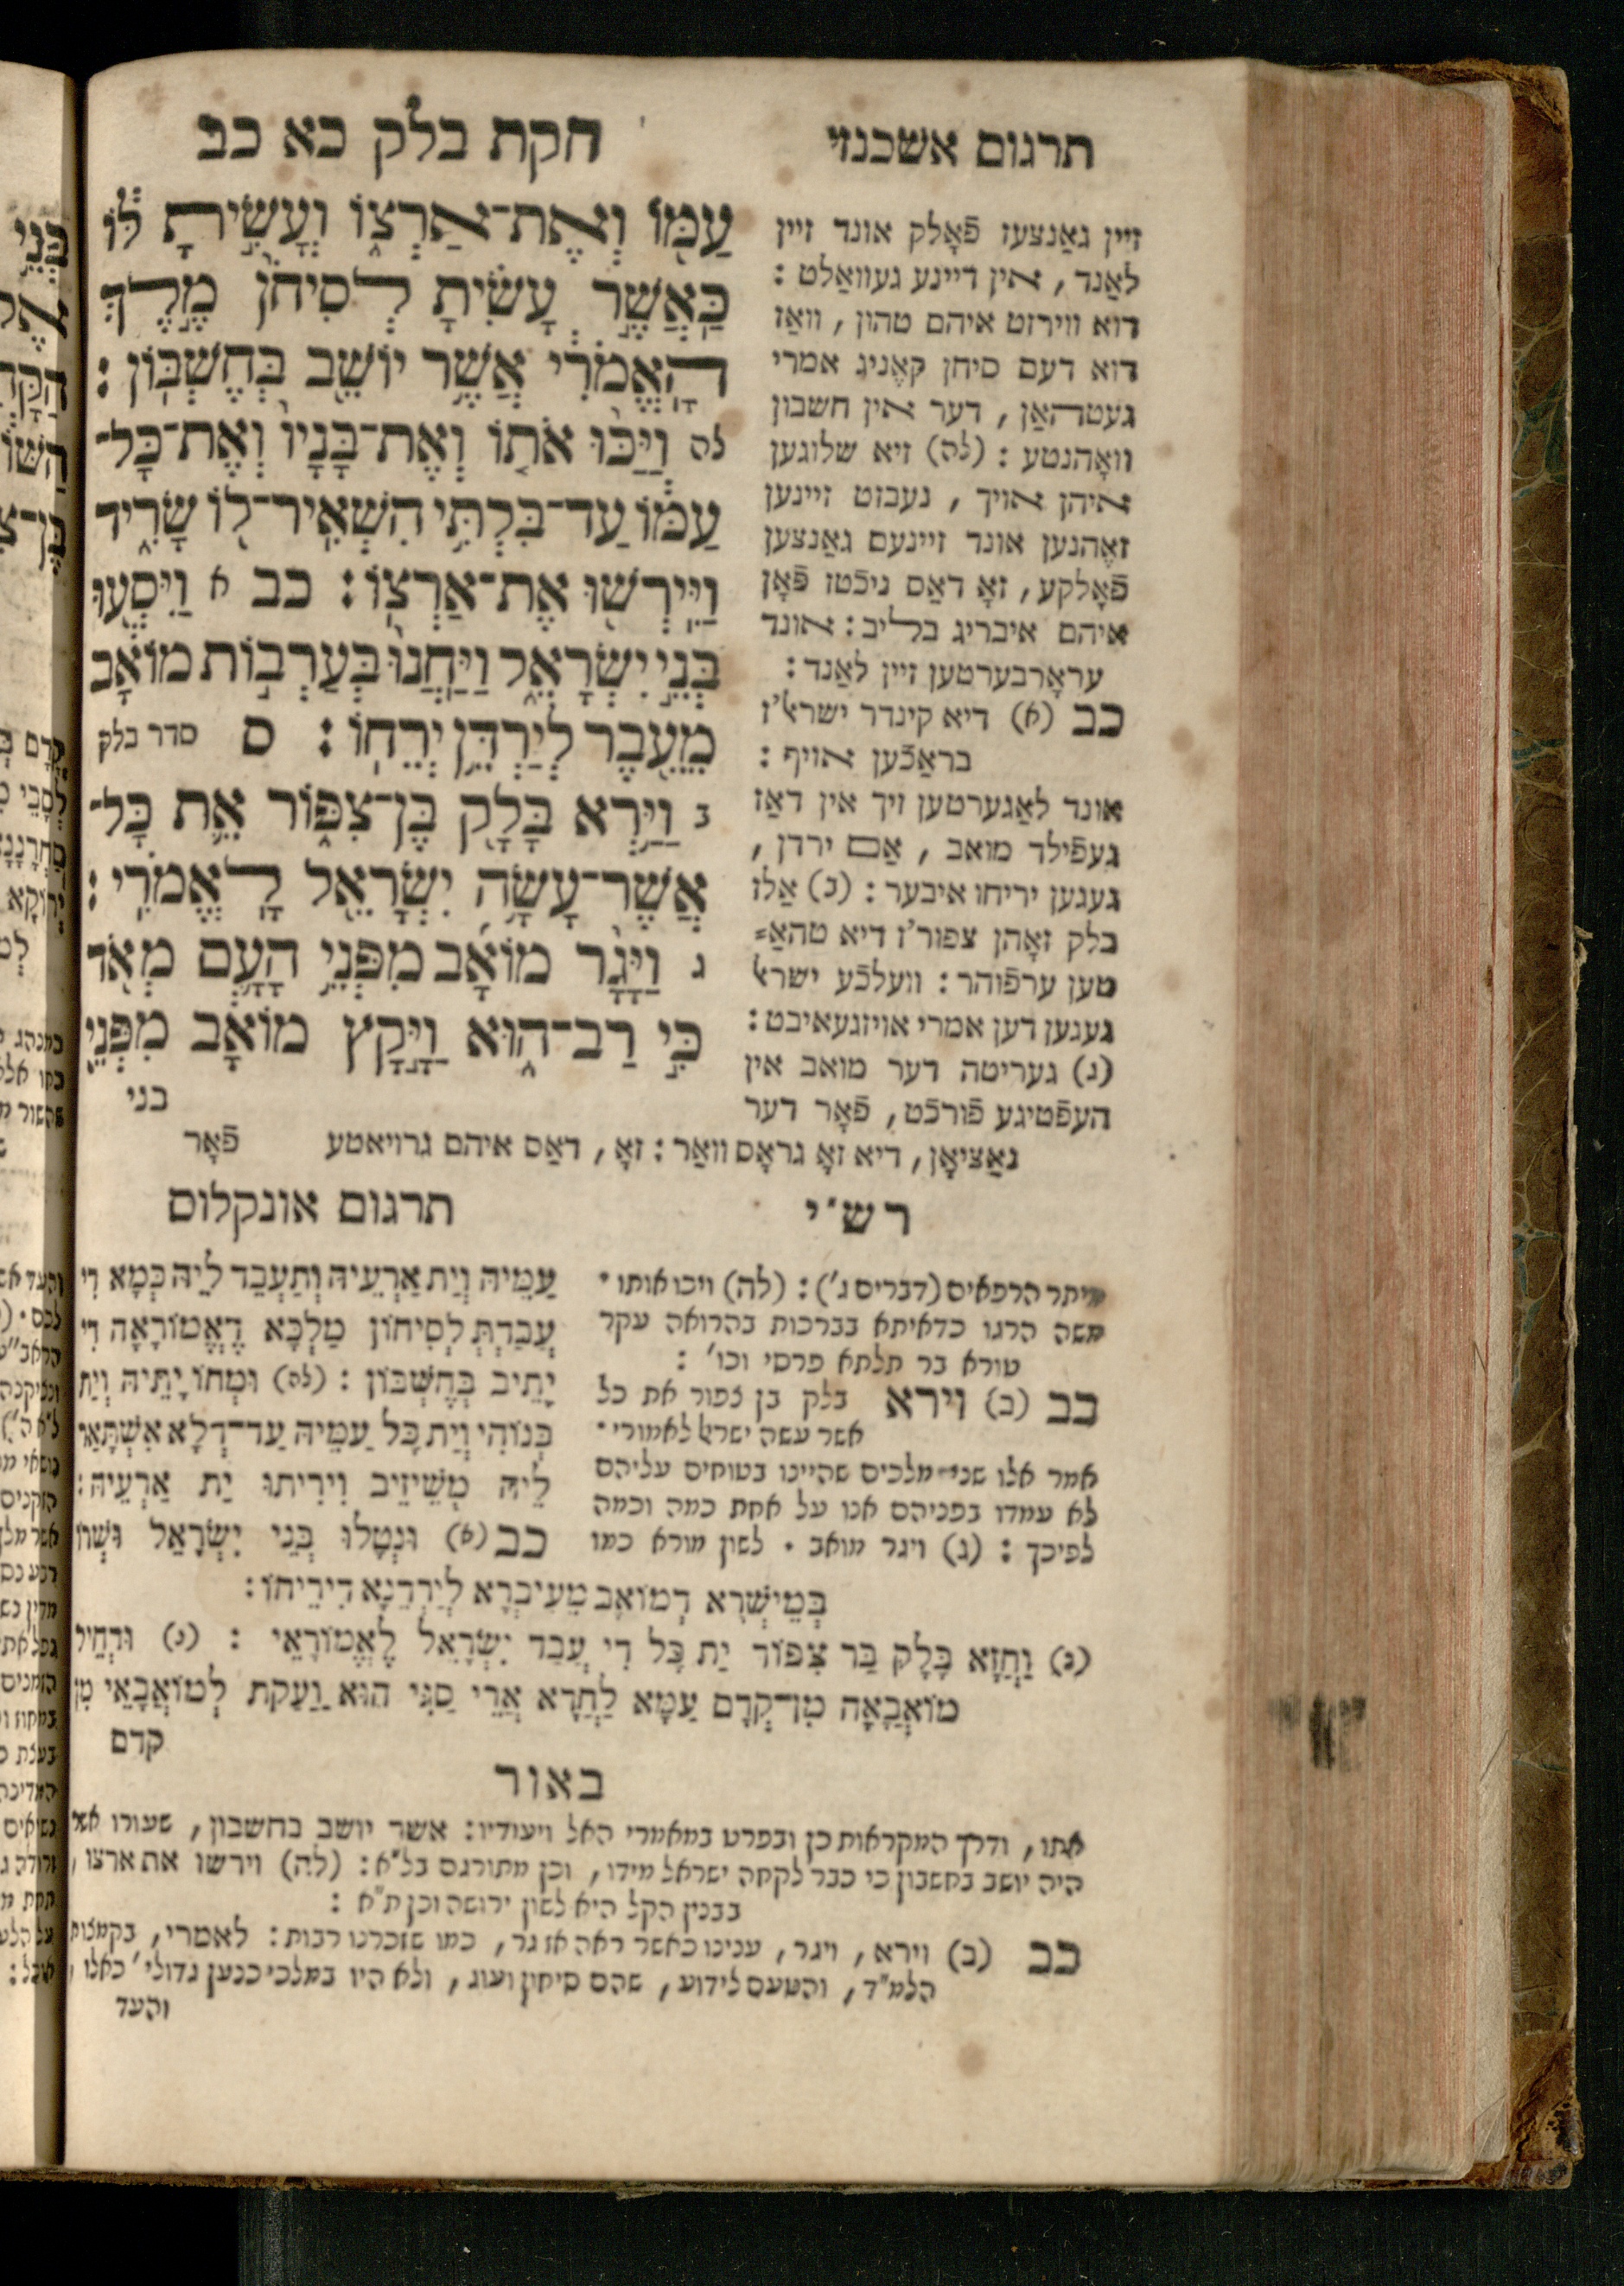 חקת בלק כא כב
עַמּ֖וֹ וְאֶת־אַרְצ֑וֹ וְעָשִׂ֣יתָ לּ֔וֹ
כַּאֲשֶׁ֣ר עָשִׂ֗יתָ לְסִיחֹן֙ מֶ֣לֶךְ
הָֽאֱמֹרִ֔י אֲשֶׁ֥ר יוֹשֵׁ֖ב בְּחֶשְׁבּֽוֹן :
לה וַיַּכּ֨וּ אֹת֤וֹ וְאֶת־בָּנָיו֙ וְאֶת־כָּל־
עַמּ֔וֹ עַד־בִּלְתִּ֥י הִשְׁאִֽיר־ל֖וֹ שָׂרִ֑יד
וַיִּֽירְשׁ֖וּ אֶת־אַרְצֽוֹ : כב א וַיִּסְע֖וּ
בְּנֵ֣י יִשְׂרָאֵ֑ל וַֽיַּחֲנוּ֙ בְּעַֽרְב֣וֹת מוֹאָ֔ב
מֵעֵ֖בֶר לְיַרְדֵּ֥ן יְרֵחֽוֹ : ס סדר בלק
ב וַיַּ֥רְא בָּלָ֖ק בֶּן־צִפּ֑וֹר אֵ֛ת כָּל־
אֲשֶׁר־עָשָׂ֥ה יִשְׂרָאֵ֖ל לָֽאֱמֹרִֽי :
ג וַיָּ֨גָר מוֹאָ֜ב מִפְּנֵ֥י הָעָ֛ם מְאֹ֖ד
כִּ֣י רַב־ה֑וּא וַיָּ֣קָץ מוֹאָ֔ב מִפְּנֵ֖י
בני
תרגום אשכנזי
זיין גאַנצעז פֿאָלק אונד זיין
לאַנד, אין דיינע געוואַלט :
דוא ווירזט איהם טהון, וואַז
דוא דעם סיחן קאֶניג אמרי
געטהאַן, דער אין חשבון
וואָהנטע : (לה) זיא שלוגען
איהן אויך, נעבזט זיינען
זאֶהנען אונד זיינעם גאַנצען
פֿאָלקע, זאָ דאַס ניכֿטז פֿאָן
איהם איבריג בליב: אונד
עראָרבערטען זיין לאַנד :
כב (א) דיא קינדר ישראל'ז
בראַכֿען אויף :
אונד לאַגערטען זיך אין דאַז
געפֿילד מואב, אַם ירדן,
געגען יריחו איבער : (ב) אַלז
בלק זאָהן צפור'ז דיא טהאַ=
טען ערפֿוהר : וועלכֿע ישראל
געגען דען אמרי אויזגעאיבט :
(ג) געריטה דער מואב אין
העפֿטיגע פֿורכֿט, פֿאָר דער
נאַציאָן, דיא זאָ גראָס וואַר : זאָ, דאַס איהם גרויאטע
פֿאָר
רש״י
מיתר הרפאים (דברים ג') : (לה) ויכו אותו •
משה הרגו כדאיתא בברכות בהרואה עקר
טורא בר תלתא פרסי וכו' :
כב (ב) וירא בלק בן צפור את כל
אשר עשה ישראל לאמורי •
אמר אלו שני מלכים שהיינו בטוחים עליהם
לא עמדו בפניהם אנו על אחת כמה וכמה
לפיכך : (ג) ויגר מואב • לשון מורא כמו
תרגום אונקלוס
עַמֵּיהּ וְיַת אַרְעֵיהּ וְתַעְבֵּד לֵיהּ כְּמָא דִי
עֲבַדְתְּ לְסִיחוֹן מַלְכָּא דֶאֱמוֹרָאָה דִי
יָתֵיב בְּחֶשְׁבּוֹן : (לה) וּמְחוֹ יָתֵיהּ וְיַת
בְּנוֹהִי וְיַת כָּל עַמֵּיהּ עַד־דְלָא אִשְׁתָּאַר
לֵיהּ מְשֵׁיזֵיב וִירִיתוּ יַת אַרְעֵיהּ :
כב (א) וּנְטָלוּ בְּנֵי יִשְׂרָאֵל וּשְׁרוֹ
בְּמֵישְׁרֵא דְמוֹאָב מֵעִיבְרָא לְיַרְדְנָא דִירֵיחוֹ :
(ב) וַחֲזָא בָּלָק בַּר צִפּוֹר יַת כָּל דִי עֲבַד יִשְׂרָאֵל לֶאֱמוֹרָאֵי : (ג) וּדְחֵיל
מוֹאֲבָאָה מִן־קֳדָם עַמָּא לַחֲדָא אֲרֵי סַגִּי הוּא וַעֲקַת לְמוֹאֲבָאֵי מִן
קדם
באור
אתו, ודרך המקראות כן ובפרט במאמרי האל ויעודיו : אשר יושב בחשבון, שעורו אשר
היה יושב בחשבון כי כבר לקחה ישראל מידו, וכן מתורגם בל״א : (לה) וירשו את ארצו,
בבנין הקל היא לשון ירושה וכן ת״א :
כב (ב) וירא, ויגר, ענינו כאשר ראה אז גר, כמו שזכרנו רבות : לאמרי, בקמצות
הלמ״ד, והטעם לידוע, שהם סיחון ועוג, ולא היו במלכי כנען גדולי' כאלו,
והעד